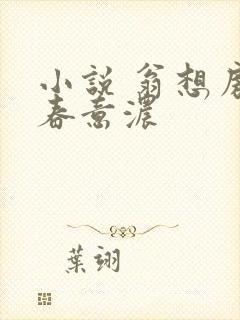 小說 翁想
春意濃
葉翊